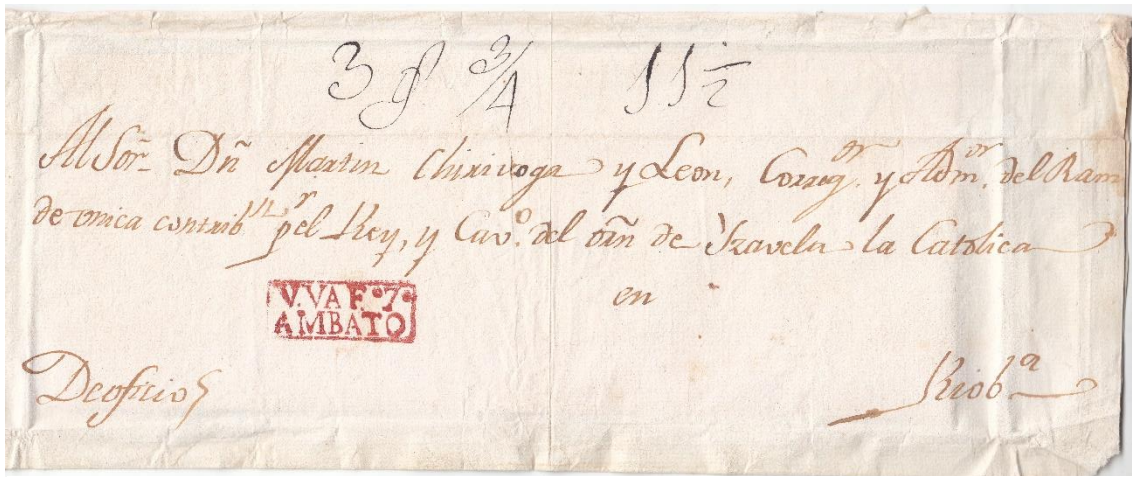 3 f 3/4 11 1/2
Al Sor. Dñ Martin Chirivoga y Leon, Correg.or y Adm.or del Ram
de vnica contrib.n pr el Rey, y Cavo. del orñ de Yzavela la Catolica
V.VA F.7.
AMBATO
en
De oficio
Riob.a